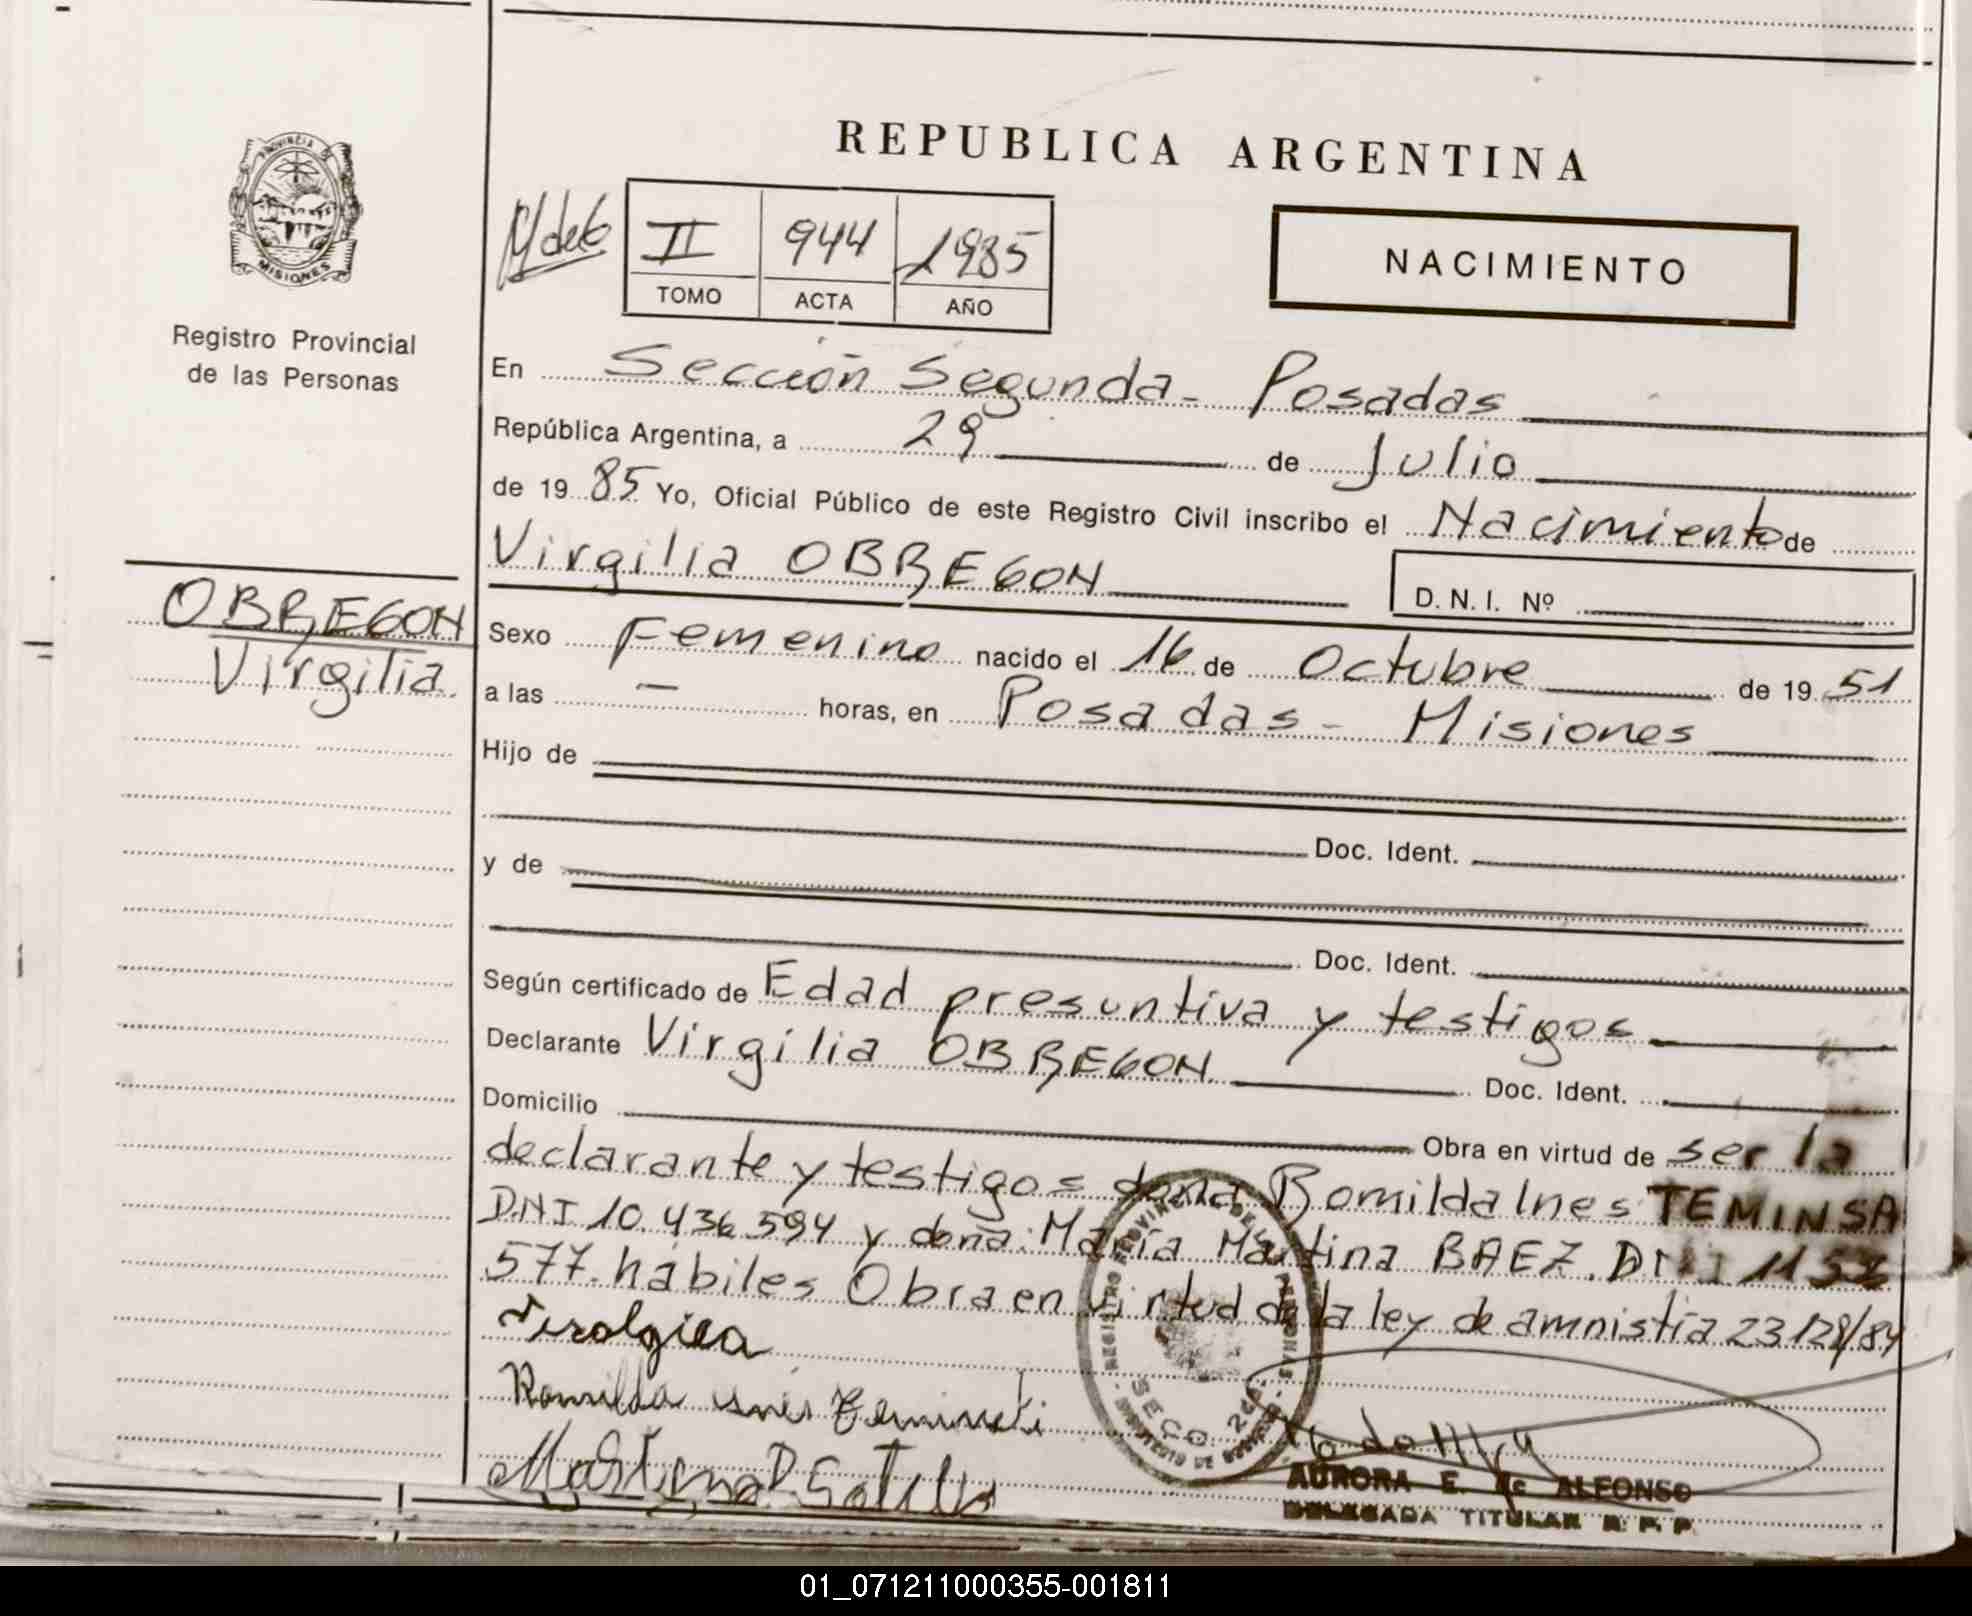 REPUBLICA ARGENTINA
PROVINCIA DE
MISIONES
Registro Provincial
de las Personas
II 944 1985
TOMO ACTA AÑO
NACIMIENTO
En Sección Segunda - Posadas
República Argentina, a 29 de Julio
de 1985 Yo, Oficial Público de este Registro Civil inscribo el Nacimiento de
Virgilia OBREGON D. N. I. Nº
OBREGON
Virgilia
Sexo Femenino nacido el 16 de Octubre de 1951
a las — horas, en Posadas - Misiones
Hijo de
Doc. Ident.
y de
Doc. Ident.
Según certificado de Edad presuntiva y testigos
Declarante Virgilia OBREGON Doc. Ident.
Domicilio Obra en virtud de ser la
declarante y testigos doña Romilda Ines TEMINSA
DNI 10.436.594 y doña: María Martina BAEZ. DNI
577. hábiles Obra en virtud de la ley de amnistía 23128/84
REGISTRO PROVINCIAL DE LAS PERSONAS
SECC. 2da
Martina
AURORA E. de ALFONSO
DELEGADA TITULAR R. P. P.
01_071211000355-001811